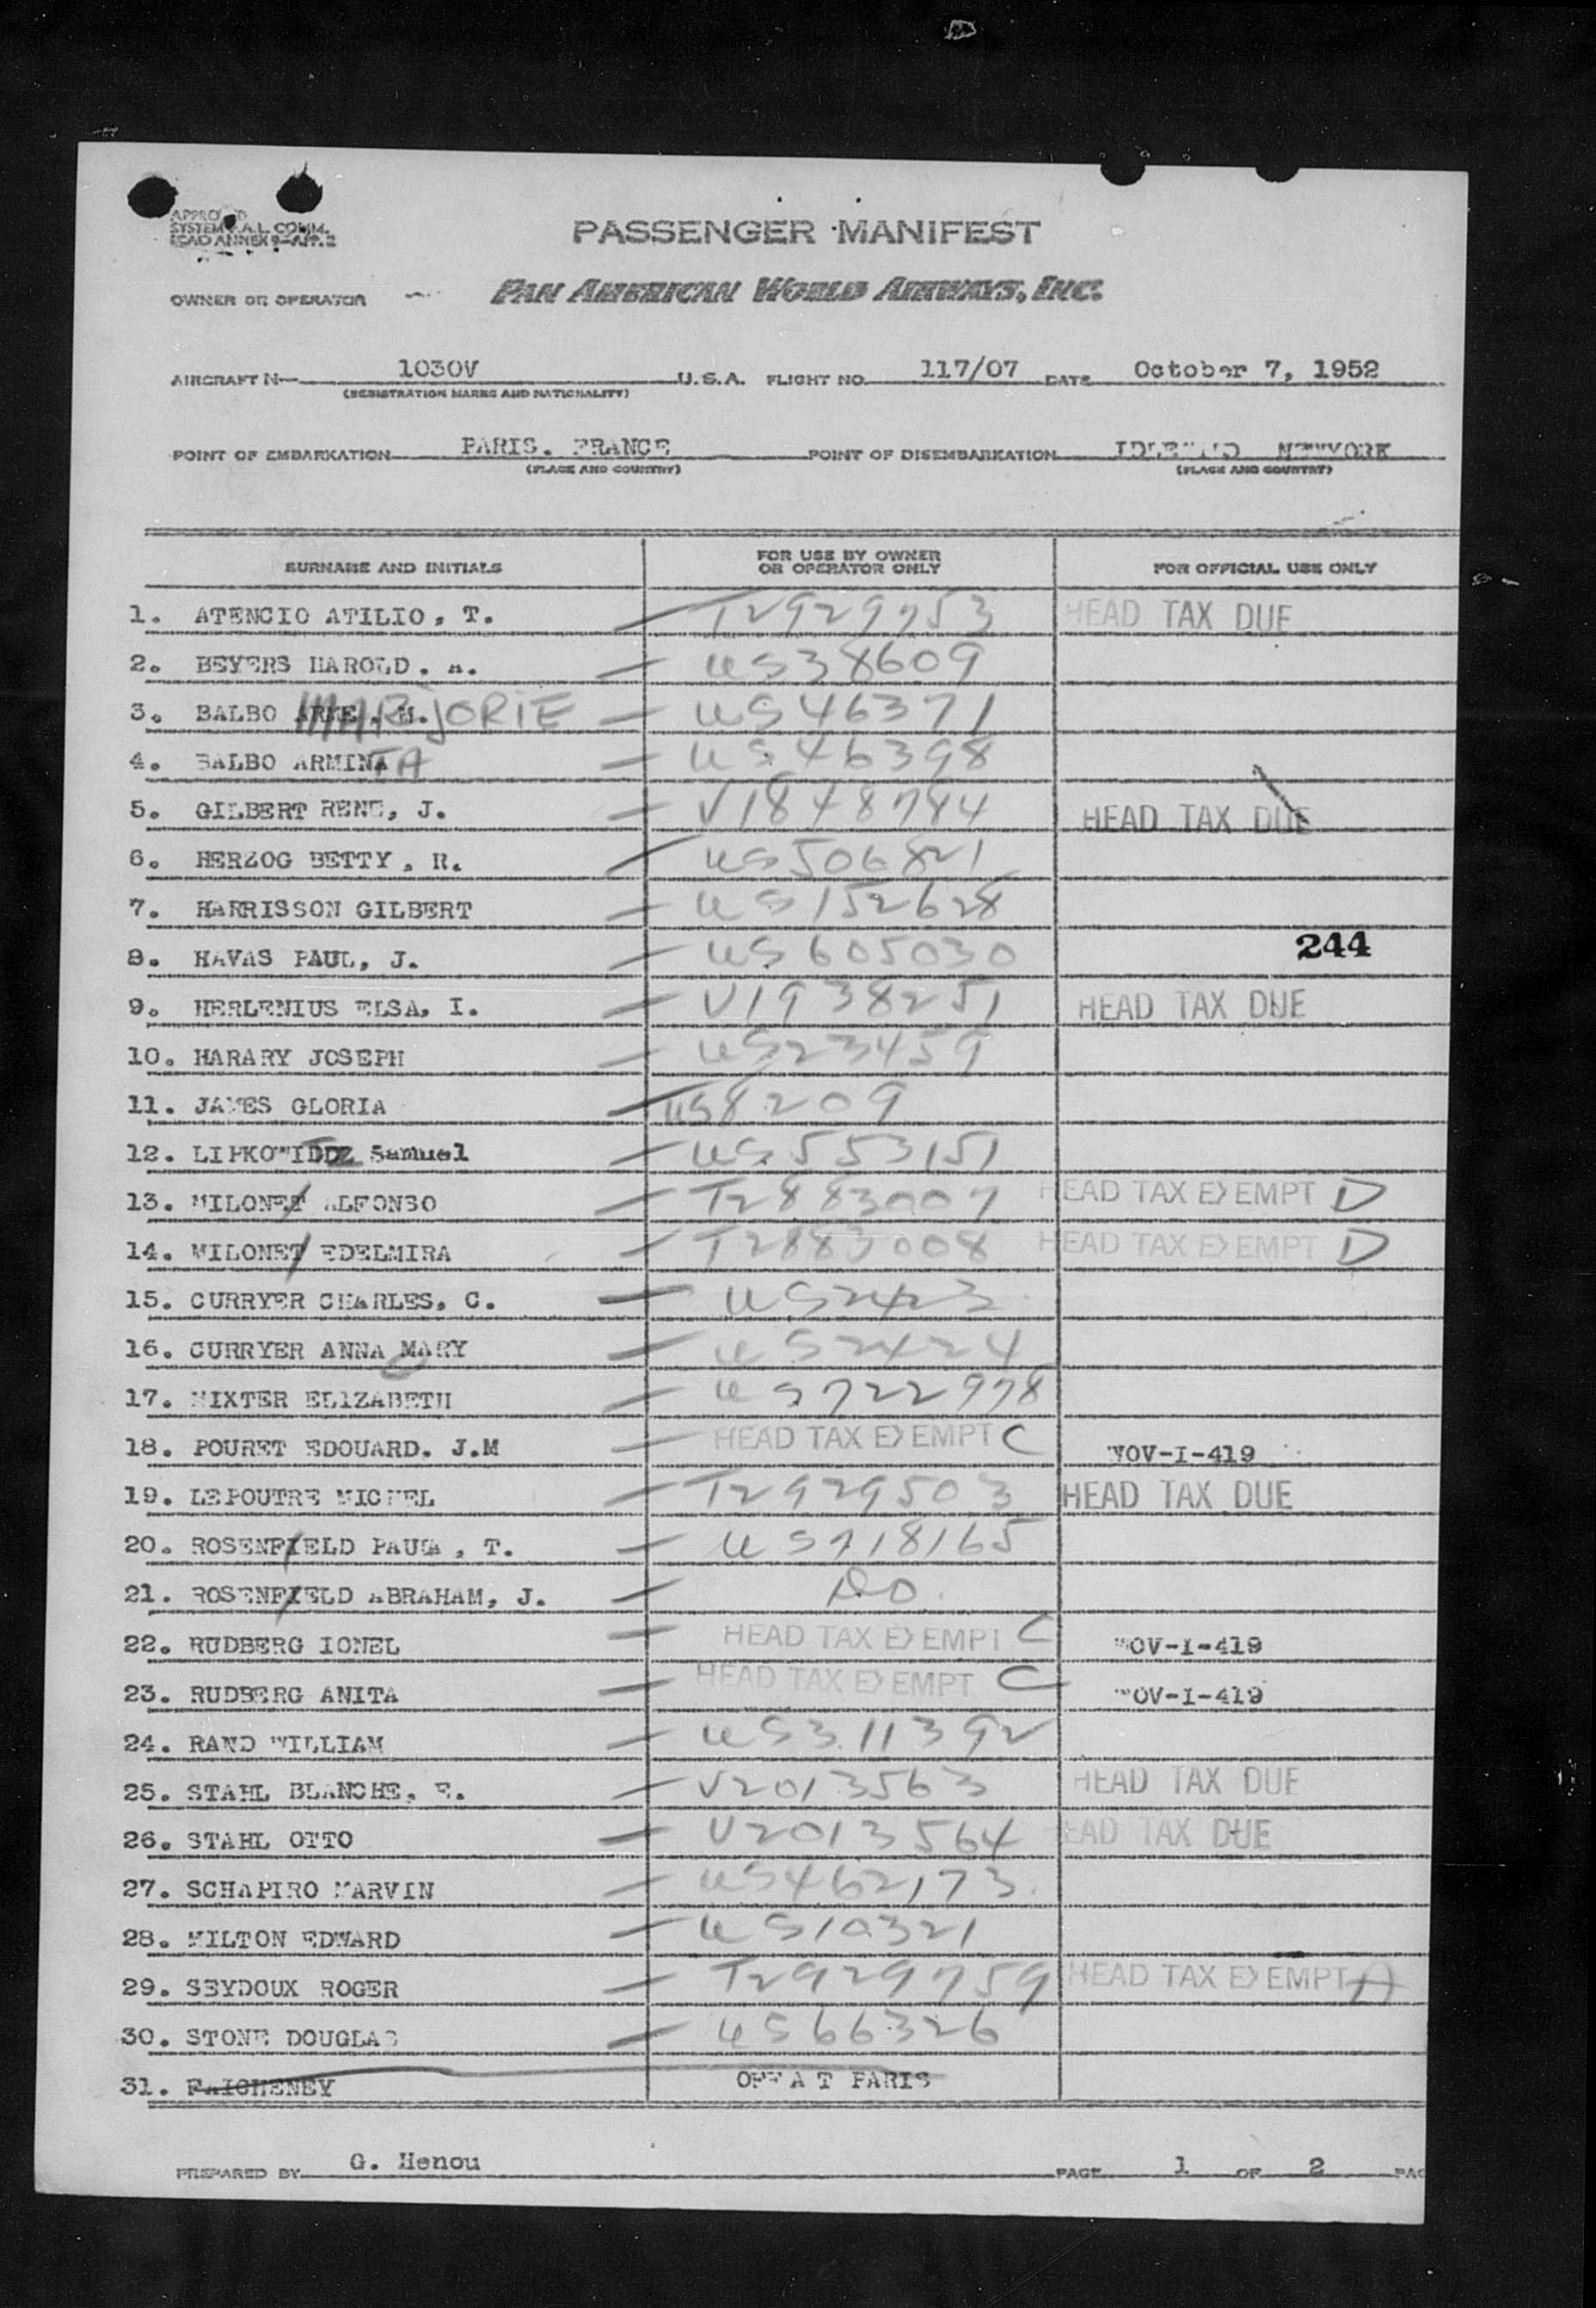 APPRO D
SYSTEM A.L. COMM.
ICAO ANNEX 9-APP. 2
PASSENGER MANIFEST
OWNER OR OPERATOR PAN AMERICAN WORLD AIRWAYS, INC.
AIRCRAFT N 1030V U.S.A. FLIGHT NO. 117/07 DATE October 7, 1952
(REGISTRATION MARKS AND NATIONALITY)
POINT OF EMBARKATION PARIS. FRANCE POINT OF DISEMBARKATION NEWYORK
(PLACE AND COUNTRY) (PLACE AND COUNTRY)
SURNAME AND INITIALS FOR USE BY OWNER OR OPERATOR ONLY FOR OFFICIAL USE ONLY
1. ATENCIO ATILIO, T. T2929753 HEAD TAX DUE
2. BEYERS HAROLD. A. US38609
3. BALBO MARJORIE US46371
4. BALBO ARMINTA US46398
5. GILBERT RENE, J. V1848784 HEAD TAX DUE
6. HERZOG BETTY, R. US506821
7. HARRISSON GILBERT US152628
8. HAVAS PAUL, J. US605030 244
9. HERLENIUS ELSA, I. V1938251 HEAD TAX DUE
10. HARARY JOSEPH US23459
11. JAMES GLORIA US8209
12. Samuel US553151
13. MILONET ALFONSO T2883007 HEAD TAX EXEMPT D
14. MILONET EDELMIRA T2883008 HEAD TAX EXEMPT D
15. CURRYER CHARLES, C. US2423
16. CURRYER ANNA MARY US2424
17. MIXTER ELIZABETH US722978
18. POURET EDOUARD. J.M HEAD TAX EXEMPT C NOV-I-419
19. LEPOUTRE MICHEL T2929503 HEAD TAX DUE
20. ROSENFIELD PAULA, T. US718165
21. ROSENFIELD ABRAHAM, J. DO.
22. RUDBERG IONEL HEAD TAX EXEMPT C NOV-I-419
23. RUDBERG ANITA HEAD TAX EXEMPT C NOV-I-419
24. RAND WILLIAM US311392
25. STAHL BLANCHE, E. V2013563 HEAD TAX DUE
26. STAHL OTTO V2013564 HEAD TAX DUE
27. SCHAPIRO MARVIN US462173
28. MILTON EDWARD US10321
29. SEYDOUX ROGER T2929759 HEAD TAX EXEMPT A
30. STONE DOUGLAS US66326
31. FAICHENEY OFF A T PARIS
PREPARED BY G. Henou PAGE 1 OF 2 PAG